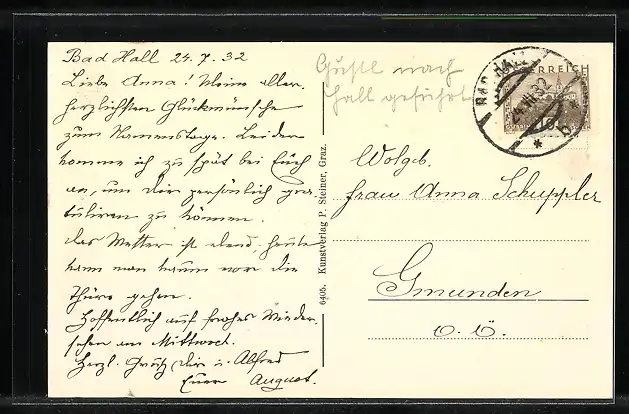 Bad Hall 24.7.32
Liebe Anna! Meine aller-
herzlichsten Glückwünsche
zum Namenstage. Leider
komme ich zu spät bei Euch
an, um Dir persönlich gra-
tulieren zu können.
Das Wetter ist elend, heute
kann man kaum vor die
Thüre gehen.
Hoffentlich auf frohes Wieder-
sehen am Mittwoch.
Herzl. Grüße Dir u. Alfred
Euer August.
6405. Kunstverlag P. Steiner, Graz.
Gustl nach
Hall geführt
BAD HALL
ÖSTERREICH
Wolgb.
Frau Anna Schuppler
Gmunden
O. Ö.